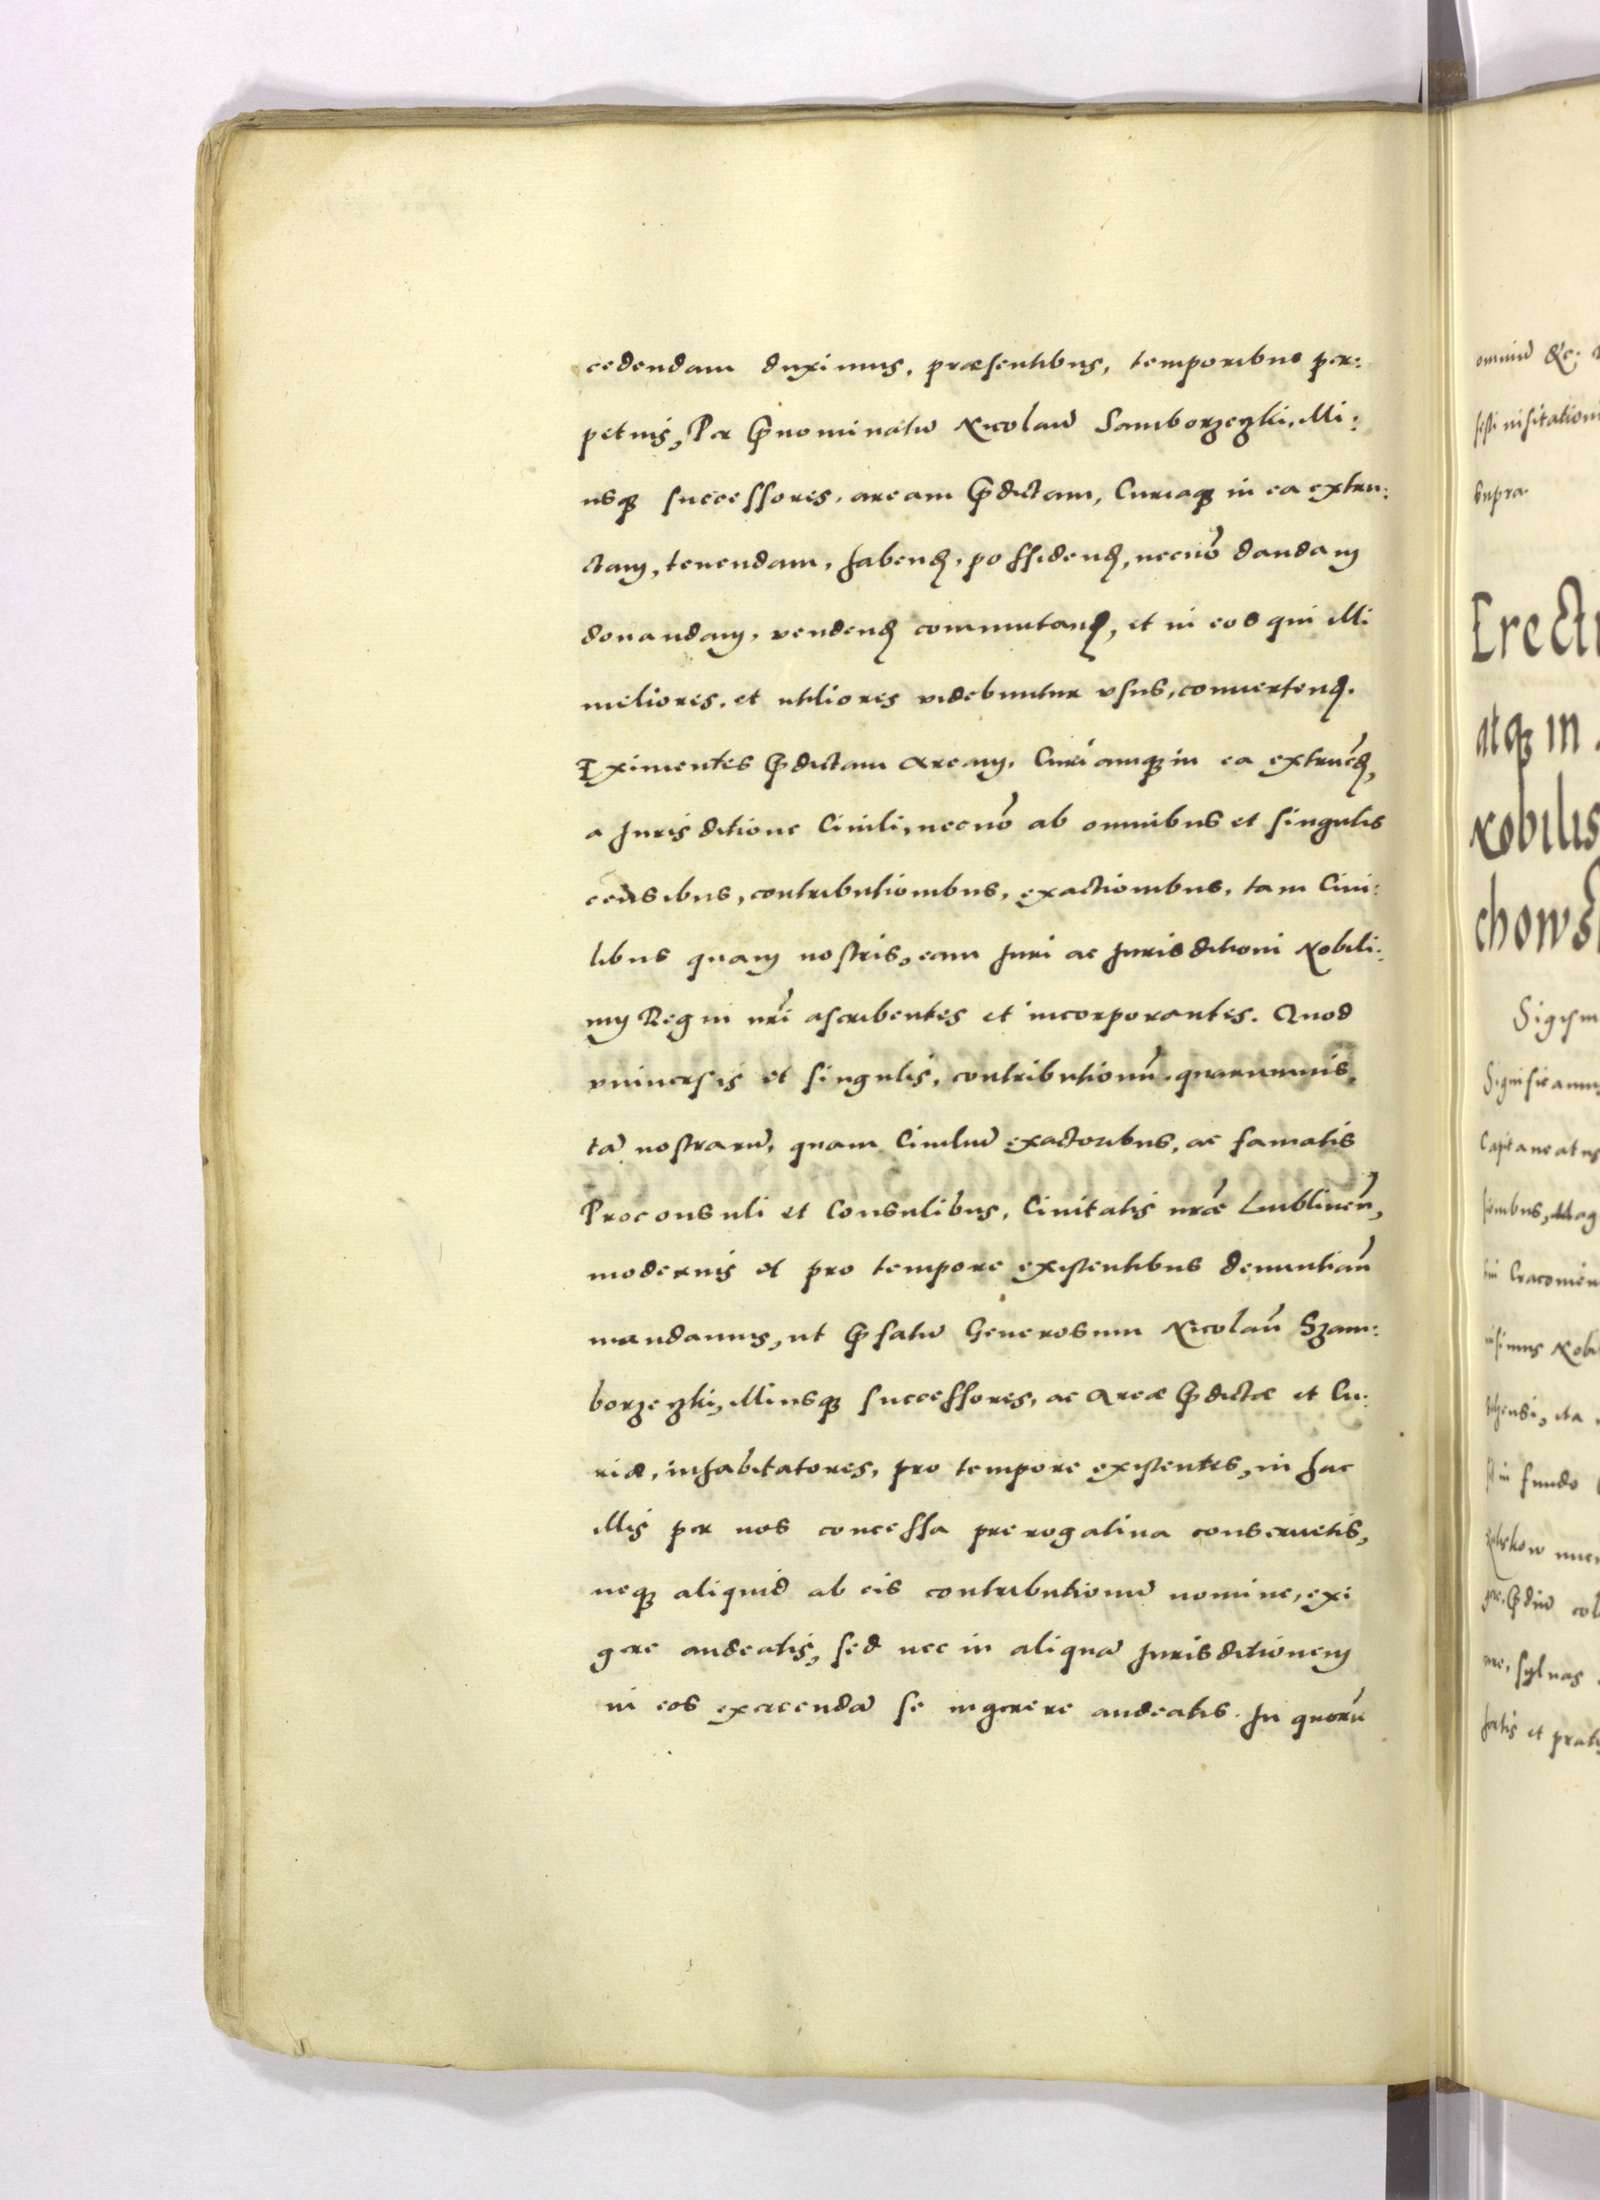 cedendam duximus, præsentibus, temporibus per:
petuis, Per p̄nominatū Nicolaū Samborzeczki, illi:
usq; successores, aream p̄dictam, Curiaq; in ea extru:
ctam, tenendam, habend, possidend, necnō dandam
donandam, vendend commutand, et in eos qui illi
meliores, et utiliores videbuntur vsus, conuertend.
Eximentes p̄dictam Aream, Curiamq; in ea extruēd,
a Jurisditione Ciuili, necnō ab omnibus et singulis
censibus, contributionibus, exactionibus, tam Ciui:
libus quam nostris, eam Juri ac Jurisditioni Nobili:
um Regni nr̄i ascribentes et incorporantes. Quod
vniuersis et singulis, contributionū quarumuis,
tā nostrarū, quam Ciuiliū exactoribus, ac famatis
Proconsuli et Consulibus, Ciuitatis nr̄æ Lublineñ,
modernis et pro tempore existentibus denuntiam̄
mandamus, ut p̄fatū Generosum Nicolaū Szam:
borzeczki, illiusq; successores, ac Areæ p̄dictæ et Cu:
riæ, inhabitatores, pro tempore existentes, in hac
illis per nos concessa prerogatiua conseruetis,
neq; aliquid ab eis contributionū nomine, exi
gere audeatis, sed nec in aliquā Jurisditionem
in eos exercendā se ingerere audeatis. In quorū
omniū &c.
uisitationi
supra.
Erecti
atq; in
Nobilis
chows
Sigism
Significamus
Capitaneatus
Mag
Cracouien
simus Nobi
ita
in fundo
p̄diū col
syluas
et pratis